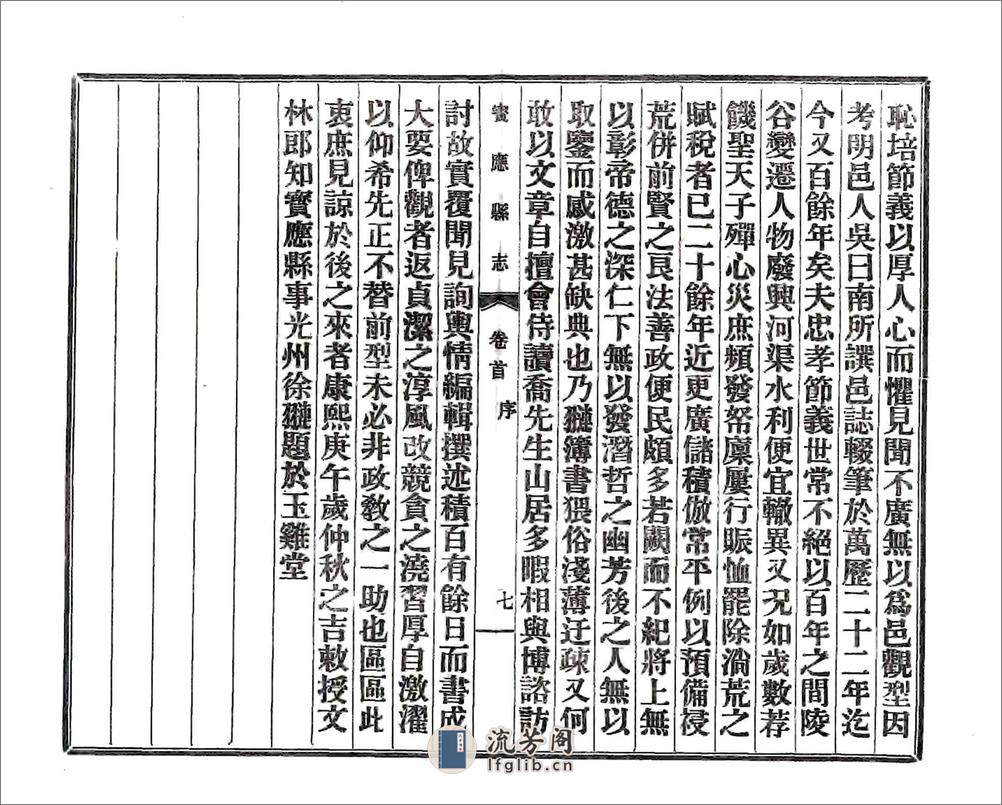 恥培節義以厚人心而懼見聞不廣無以爲邑觀型因
考明邑人吳曰南所譔邑誌輟筆於萬歷二十二年迄
今又百餘年矣夫忠孝節義世常不絕以百年之間陵
谷變遷人物廢興河渠水利便宜轍異又況如歲數荐
饑聖天子殫心災庶頻發帑廩屢行賑恤罷除淌荒之
賦稅者已二十餘年近更廣儲積倣常平例以預備祲
荒併前賢之良法善政便民頗多若闕而不紀將上無
以彰帝德之深仁下無以發潛哲之幽芳後之人無以
取鑒而感激甚缺典也乃㺦簿書猥俗淺薄迂疎又何
敢以文章自擅會侍讀喬先生山居多暇相與博諮訪
寶應縣志 卷首 序 七
討故實覆聞見詢輿情編輯撰述積百有餘日而書成
大要俾觀者返貞潔之淳風改競貪之澆習厚自激濯
以仰希先正不替前型未必非政敎之一助也區區此
衷庶見諒於後之來者康熙庚午歲仲秋之吉敕授文
林郎知寶應縣事光州徐㺦題於玉雞堂
流芳阁
lfglib.cn